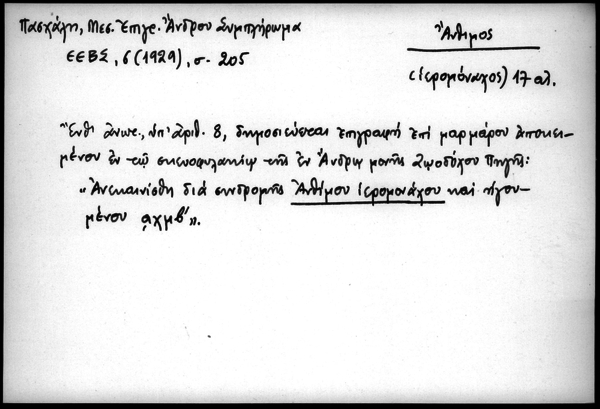 Πασχάλη, Μεσ. Ἐπιγρ. Ἄνδρου Συμπλήρωμα
ΕΕΒΣ, 6 (1929), σ. 205
Ἄνθιμος
(ἱερομόναχος) 17 αἰ.
Ἔνθ' ἀνωτ., ὑπ' ἀριθ. 8, δημοσιεύεται ἐπιγραφή ἐπί μαρμάρου ἀποκει-
μένου ἐν τῷ σκευοφυλακίῳ τῆς ἐν Ἄνδρῳ μονῆς Ζωοδόχου Πηγῆς:
"Ἀνεκαινίσθη διά συνδρομῆς Ἀνθίμου ἱερομονάχου καί ἡγου-
μένου ͵αχμβ'".